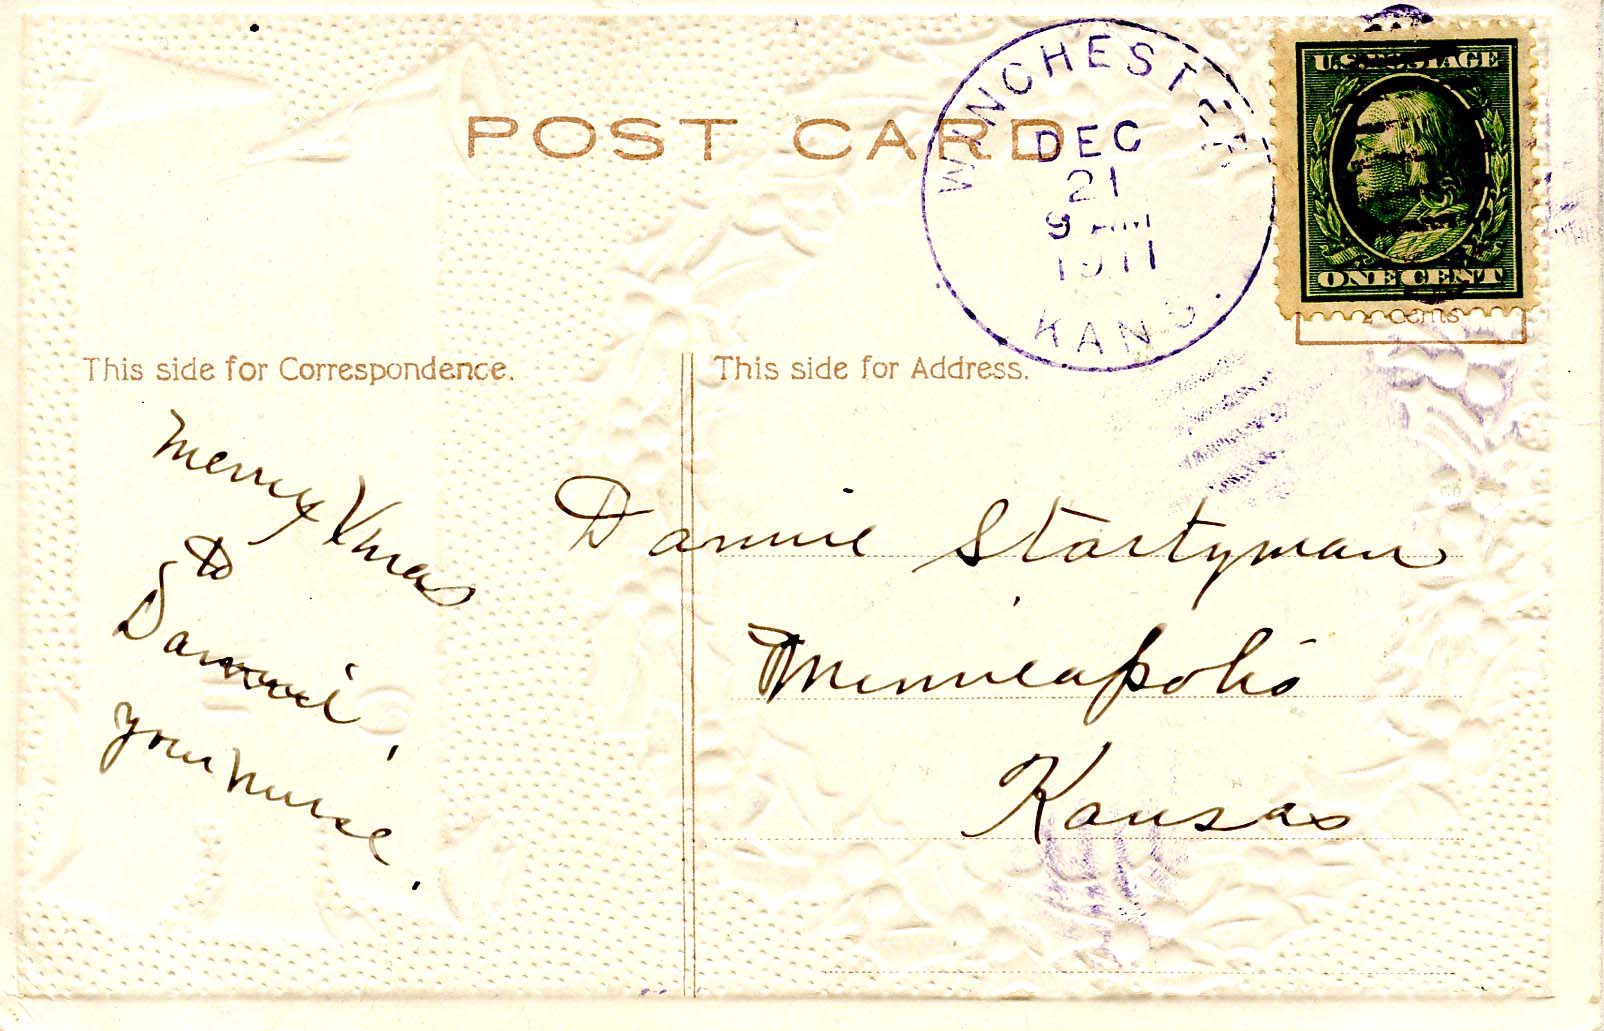 POST CARD
WINCHESTER
DEC
21
9 AM
1911
KANS.
U.S. POSTAGE
ONE CENT
This side for Correspondence.
This side for Address.
Merry Xmas
to
Dannie,
your nurse.
Dannie Startyman
Minneapolis
Kansas